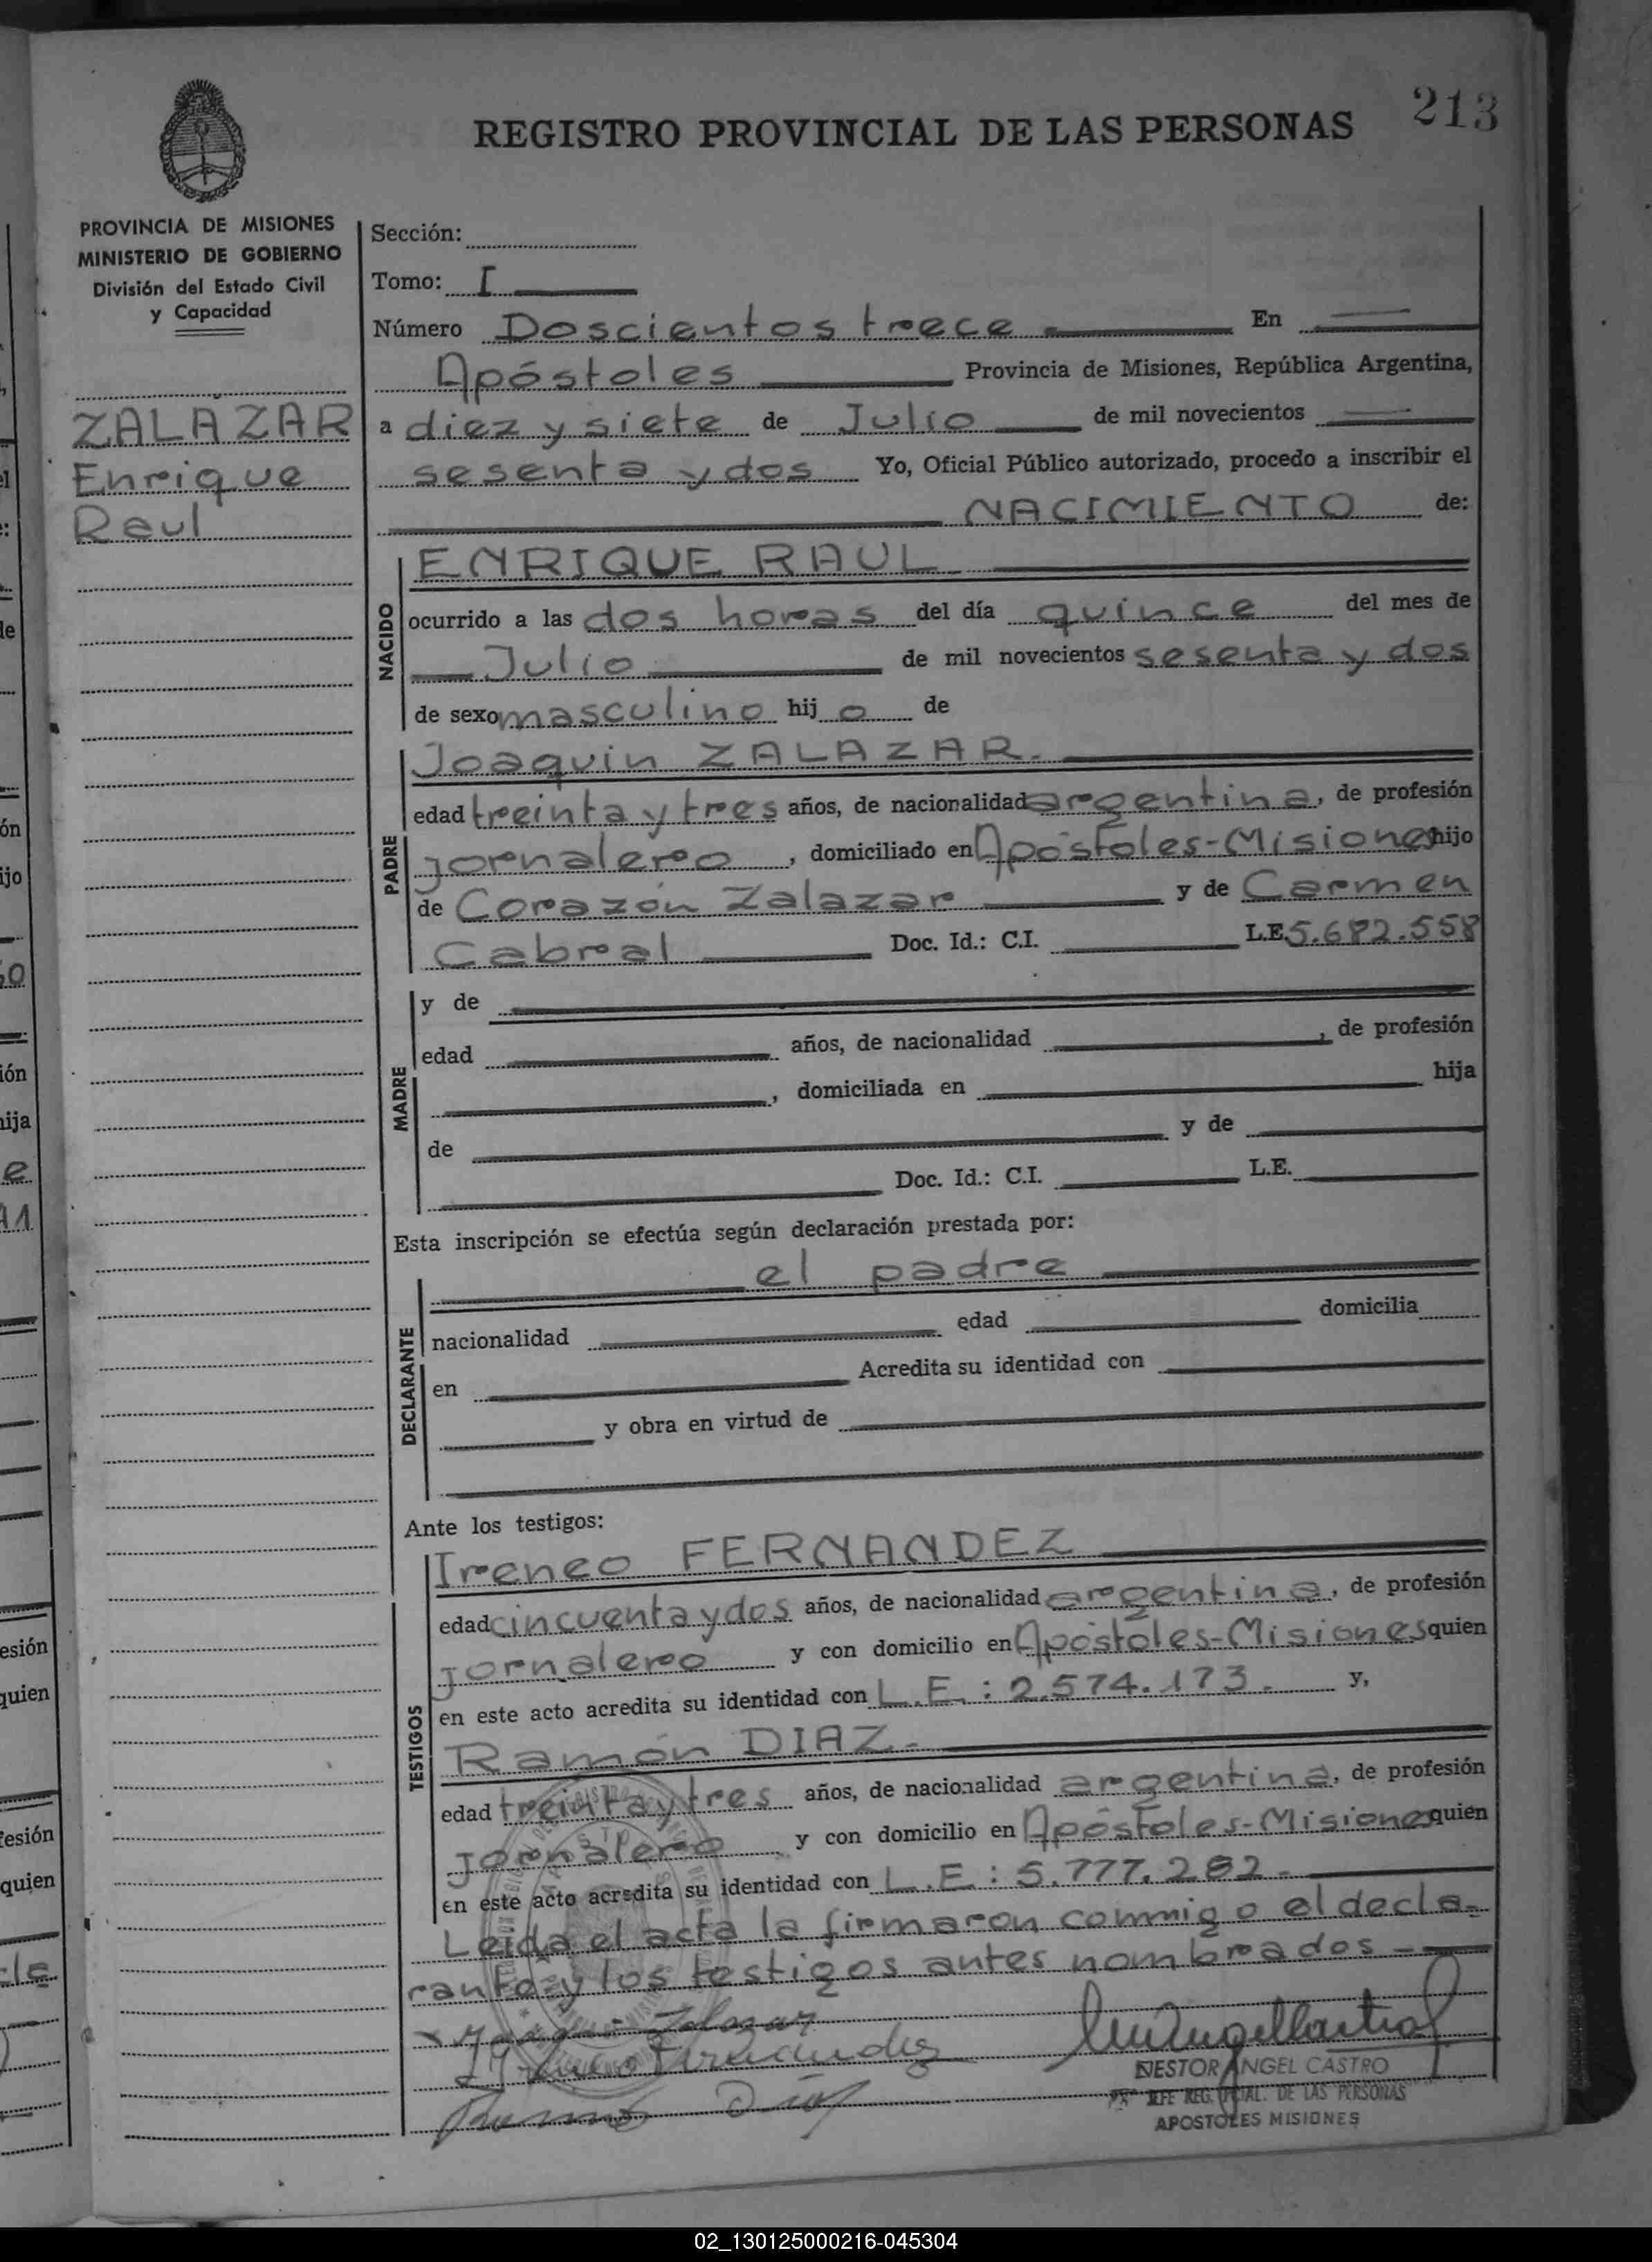 213
REGISTRO PROVINCIAL DE LAS PERSONAS
PROVINCIA DE MISIONES
MINISTERIO DE GOBIERNO
División del Estado Civil
y Capacidad
ZALAZAR
Enrique
Raul
Sección:
Tomo: I
Número Doscientos trece En
Apóstoles Provincia de Misiones, República Argentina,
a diez y siete de Julio de mil novecientos
sesenta y dos Yo, Oficial Público autorizado, procedo a inscribir el
NACIMIENTO de:
NACIDO
ENRIQUE RAUL
ocurrido a las dos horas del día quince del mes de
Julio de mil novecientos sesenta y dos
de sexo masculino hij o de
PADRE
Joaquin ZALAZAR.
edad treinta y tres años, de nacionalidad argentina, de profesión
jornalero, domiciliado en Apóstoles-Misiones hijo
de Corazón Zalazar y de Carmen
Cabral Doc. Id.: C.I. L.E. 5.682.558
MADRE
y de
edad años, de nacionalidad , de profesión
, domiciliada en hija
de y de
Doc. Id.: C.I. L.E.
Esta inscripción se efectúa según declaración prestada por:
DECLARANTE
el padre
nacionalidad edad domicilia
en Acredita su identidad con
y obra en virtud de
Ante los testigos:
TESTIGOS
Ireneo FERNANDEZ
edad cincuenta y dos años, de nacionalidad argentina, de profesión
jornalero y con domicilio en Apóstoles-Misiones quien
en este acto acredita su identidad con L.E.: 2.574.173. y,
Ramón DIAZ.-
edad treinta y tres años, de nacionalidad argentina, de profesión
jornalero y con domicilio en Apóstoles-Misiones quien
en este acto acredita su identidad con L.E: 5.777.282.-
Leida el acta la firmaron conmigo el decla-
rante y los testigos antes nombrados -
x Joaquin Zalazar
Ireneo Fernandez
Ramon Diaz
NESTOR ANGEL CASTRO
JEFE REG. PCIAL. DE LAS PERSONAS
APOSTOLES MISIONES
02_130125000216-045304